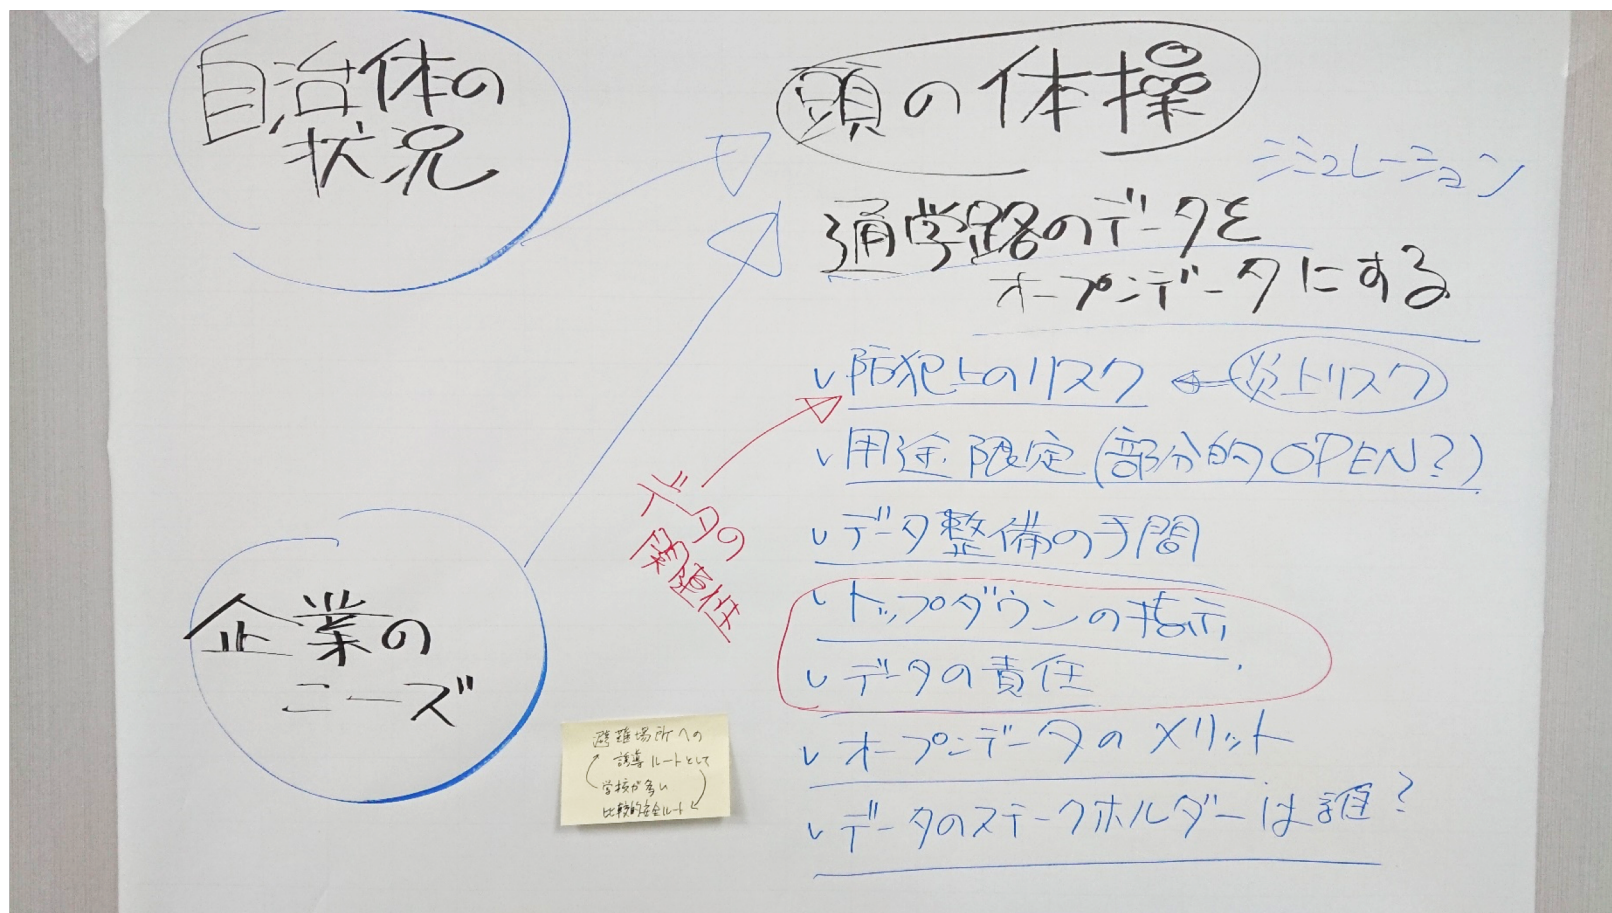 自治体の
状況
頭の体操
シミュレーション
通学路のデータを
オープンデータにする
✓防犯上のリスク ← 炎上リスク
✓用途限定(部分的OPEN?)
✓データ整備の手間
✓トップダウンの指示
✓データの責任
✓オープンデータのメリット
✓データのステークホルダーは誰?
データの
関連性
企業の
ニーズ
避難場所への
誘導ルートとして
学校が多い
比較的安全ルート